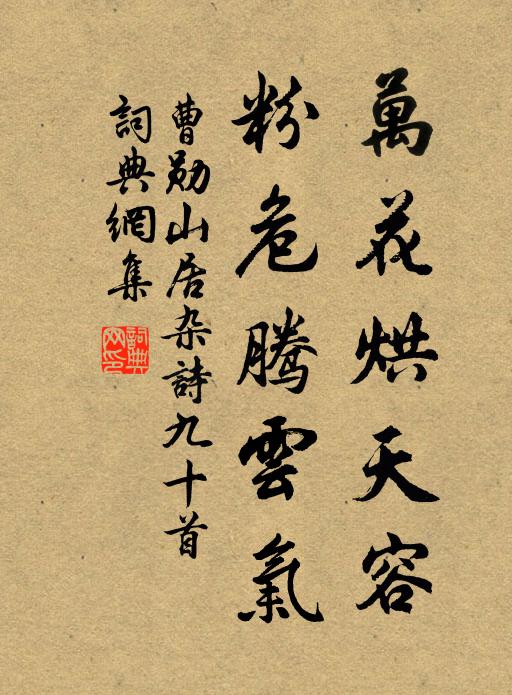 萬花烘天容
粉危騰雲氣
曹勛山居杂詩九十首
詞典網集
詞典網印